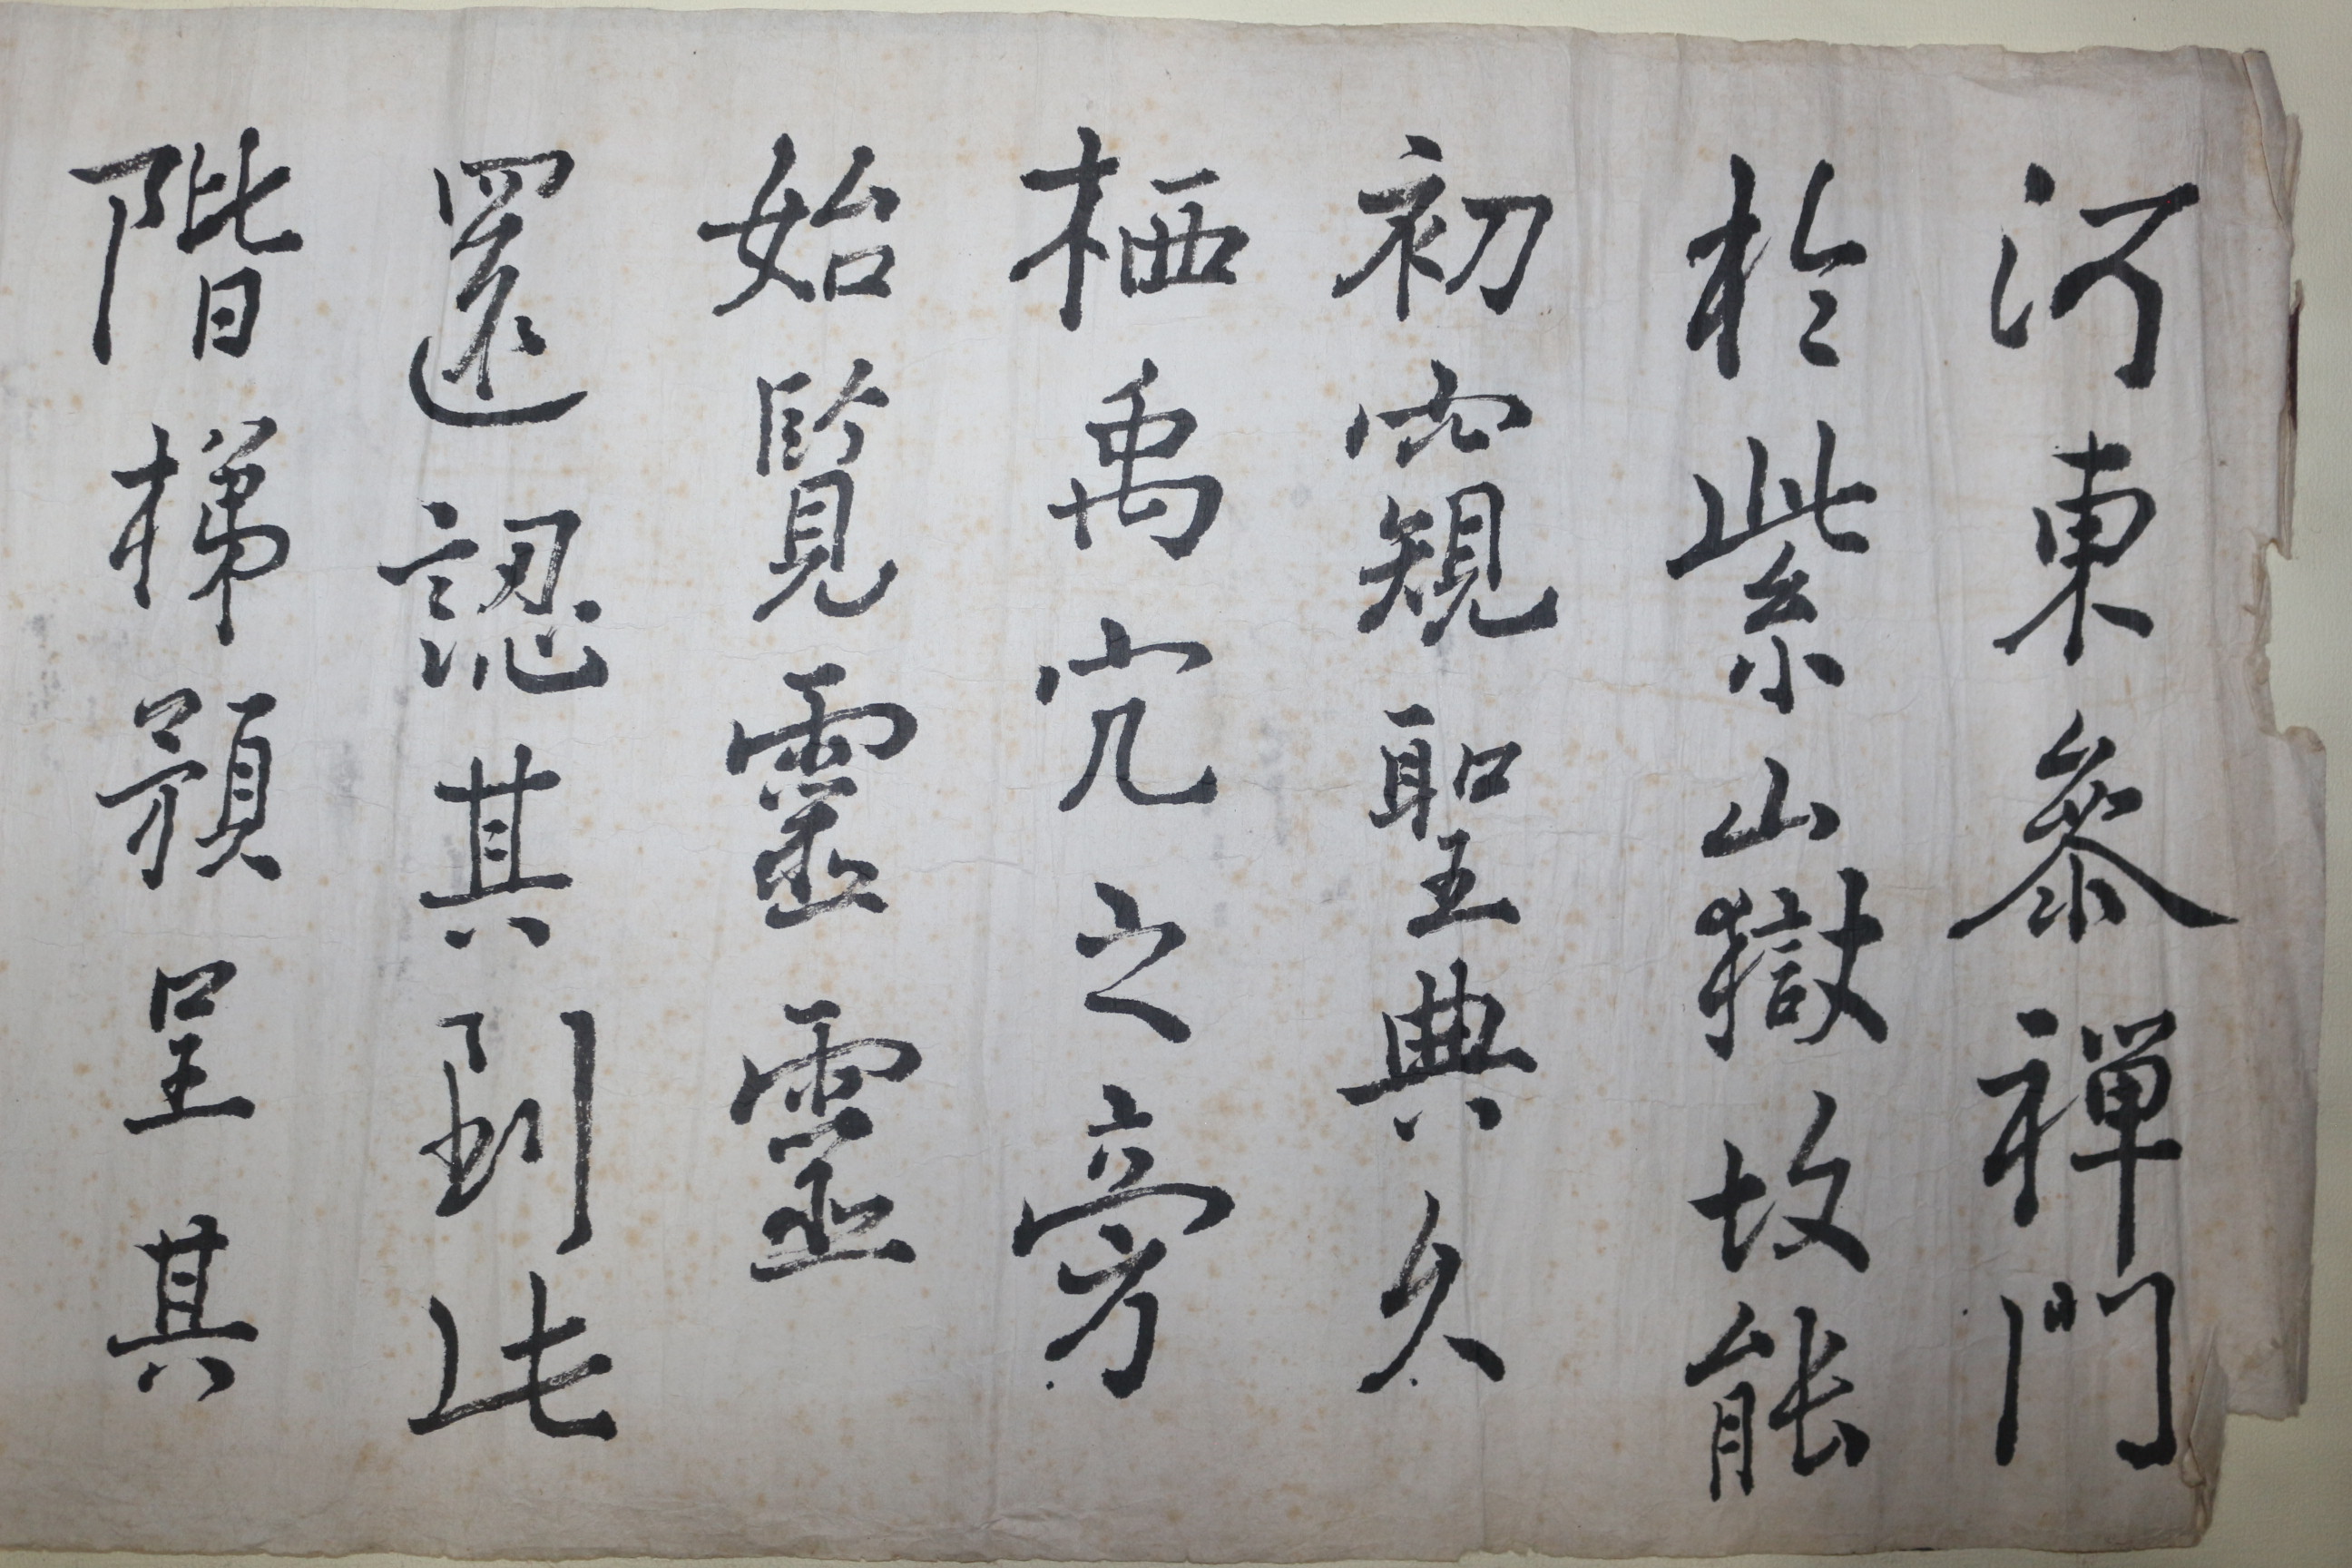 河東叅禅門
於紫嶽故能
初窺聖典久
栖禹穴之旁
始覧靈靈
還認其到此
階梯呈其